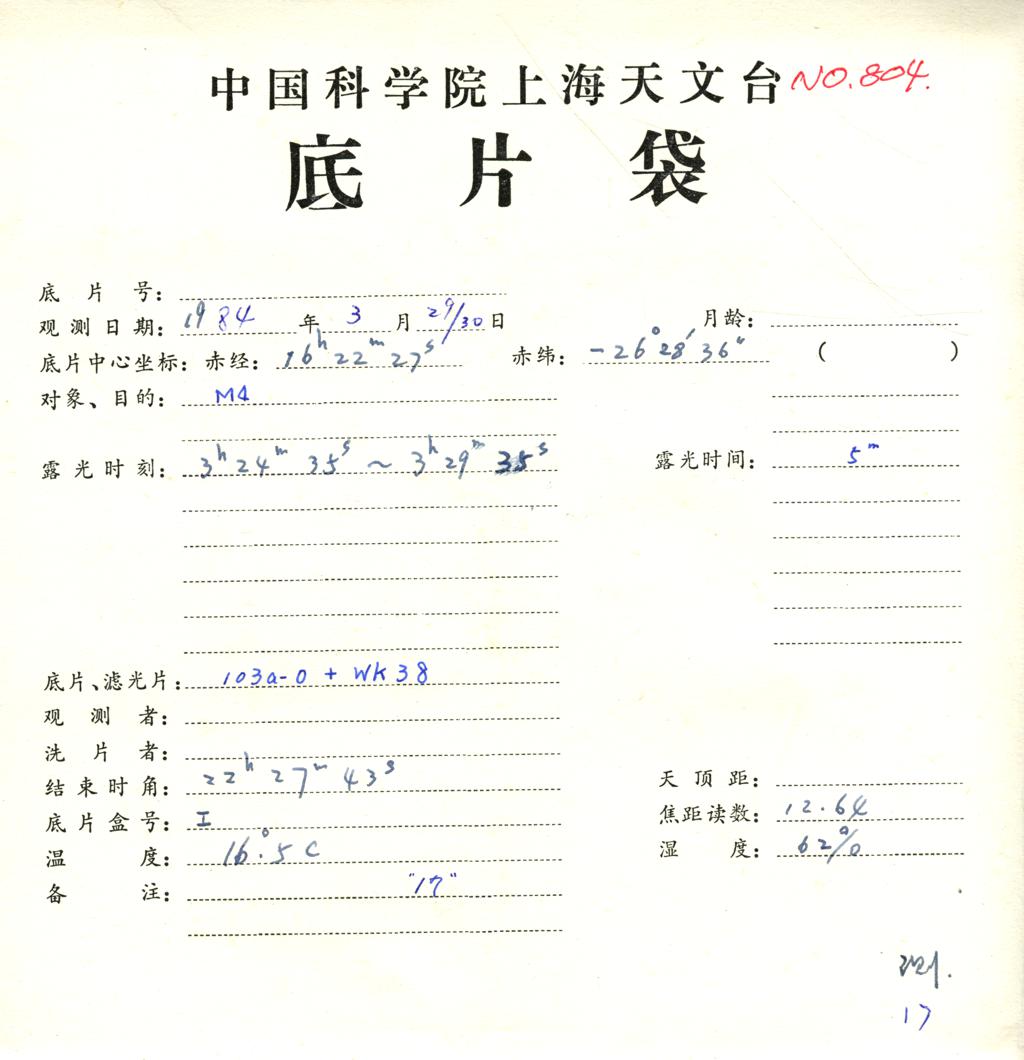 中国科学院上海天文台 NO.804.
底片袋
底片号:
观测日期: 1984年3月29/30日 月龄:
底片中心坐标: 赤经: 16h22m27s 赤纬: -26°28′36″ ( )
对象、目的: M4
露光时刻: 3h24m35s ~ 3h29m35s 露光时间: 5m
底片、滤光片: 103a-O + WK38
观测者:
洗片者:
结束时角: 22h27m43s 天顶距:
底片盒号: I 焦距读数: 12.64
温度: 16°.5C 湿度: 62%
备注: "17"
17